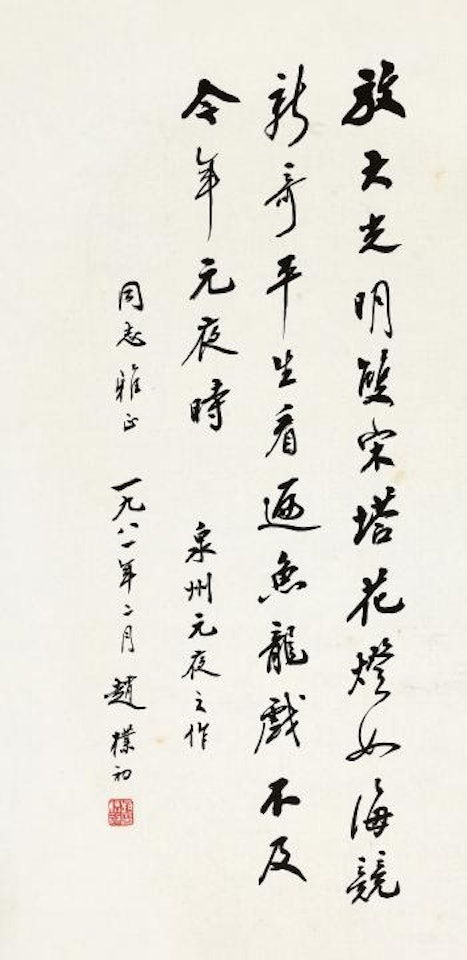 放大光明雙宋塔花燈如海競
新奇平生看遍魚龍戲不及
今年元夜時
泉州元夜之作
同志雅正 一九八一年二月 趙樸初